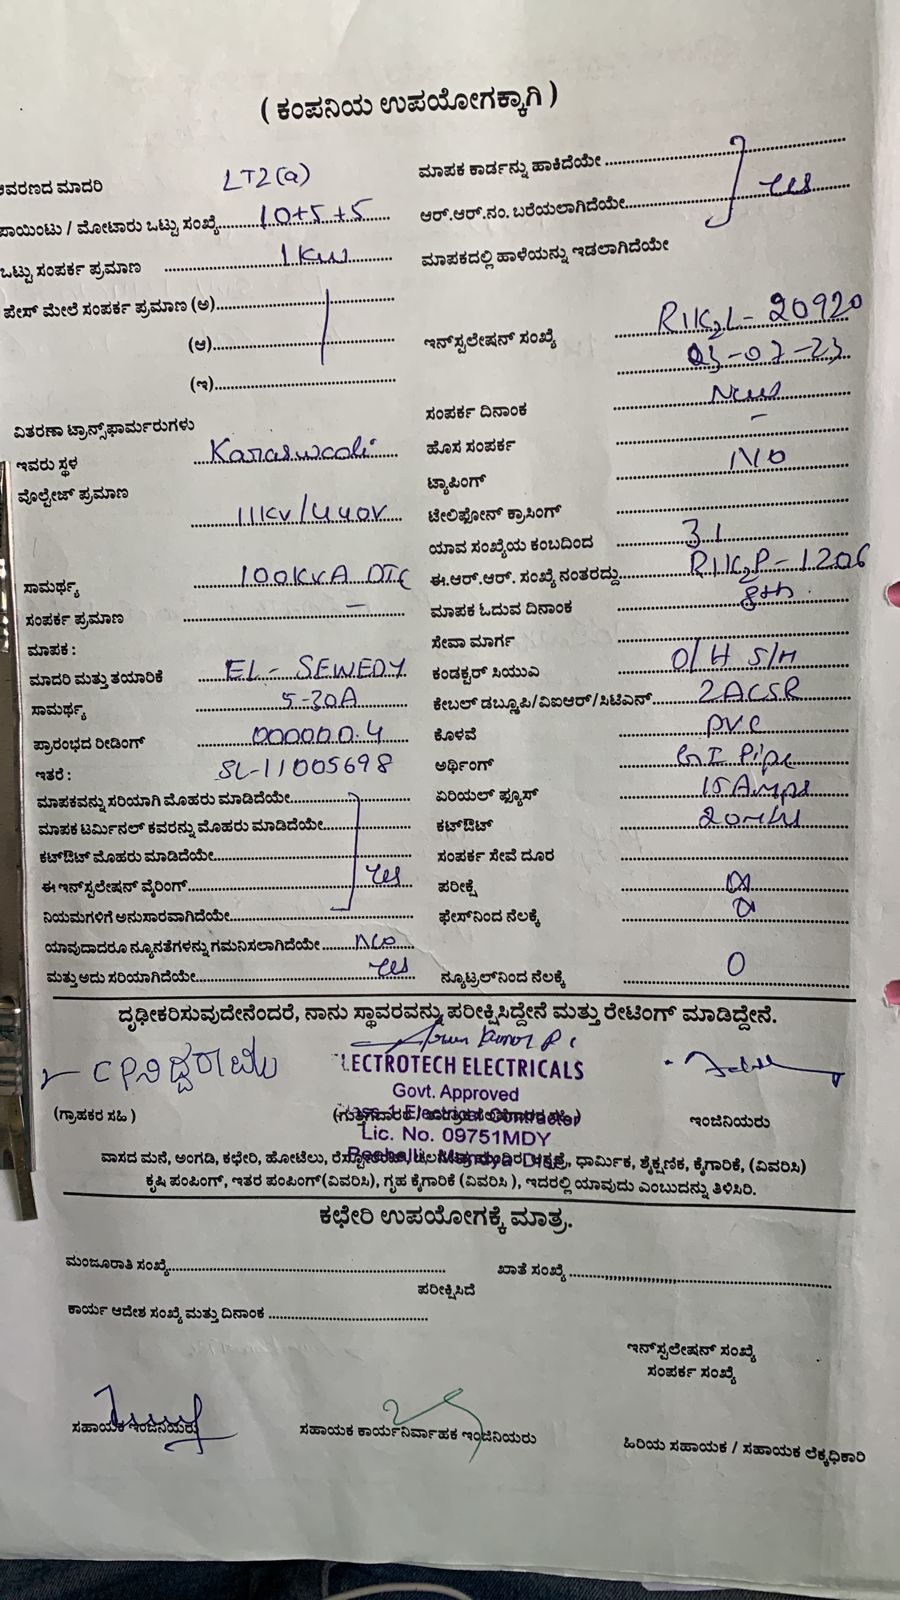 ( ಕಂಪನಿಯ ಉಪಯೋಗಕ್ಕಾಗಿ )
ಆವರಣದ ಮಾದರಿ LT2(a)
ಮಾಪಕ ಕಾರ್ಡನ್ನು ಹಾಕಿದೆಯೇ
ಪಾಯಿಂಟು / ಮೋಟಾರು ಒಟ್ಟು ಸಂಖ್ಯೆ 10+5+5
ಆರ್.ಆರ್.ನಂ. ಬರೆಯಲಾಗಿದೆಯೇ yes
ಒಟ್ಟು ಸಂಪರ್ಕ ಪ್ರಮಾಣ 1 Kw
ಮಾಪಕದಲ್ಲಿ ಹಾಳೆಯನ್ನು ಇಡಲಾಗಿದೆಯೇ
ಫೇಸ್ ಮೇಲೆ ಸಂಪರ್ಕ ಪ್ರಮಾಣ (ಅ)
(ಆ)
ಇನ್‌ಸ್ಟಲೇಷನ್ ಸಂಖ್ಯೆ R1K2L-20920
03-07-23
(ಇ)
ಸಂಪರ್ಕ ದಿನಾಂಕ New
ವಿತರಣಾ ಟ್ರಾನ್ಸ್‌ಫಾರ್ಮರುಗಳು
ಹೊಸ ಸಂಪರ್ಕ -
ಇವರು ಸ್ಥಳ
ಟ್ಯಾಪಿಂಗ್ NO
ವೊಲ್ಟೇಜ್ ಪ್ರಮಾಣ 11KV/440V
ಟೇಲಿಫೋನ್ ಕ್ರಾಸಿಂಗ್
ಯಾವ ಸಂಖ್ಯೆಯ ಕಂಬದಿಂದ 31
ಸಾಮರ್ಥ್ಯ 100KVA DTC
ಈ.ಆರ್.ಆರ್. ಸಂಖ್ಯೆ ನಂತರದ್ದು R1K2P-1206
ಸಂಪರ್ಕ ಪ್ರಮಾಣ -
ಮಾಪಕ ಓದುವ ದಿನಾಂಕ 8th
ಮಾಪಕ :
ಸೇವಾ ಮಾರ್ಗ
ಮಾದರಿ ಮತ್ತು ತಯಾರಿಕೆ EL-SEWEDY
ಕಂಡಕ್ಟರ್ ಸಿಯುಎ O/H S/M
ಸಾಮರ್ಥ್ಯ 5-30A
ಕೇಬಲ್ ಡಬ್ಲೂಪಿ/ವಿಐಆರ್/ಸಿಟಿಎಸ್ 2ACSR
ಪ್ರಾರಂಭದ ರೀಡಿಂಗ್ 000000.4
ಕೊಳವೆ PVC
ಇತರೆ : SL-11005698
ಅರ್ಥಿಂಗ್ GI Pipe
ಮಾಪಕವನ್ನು ಸರಿಯಾಗಿ ಮೊಹರು ಮಾಡಿದೆಯೇ
ಏರಿಯಲ್ ಫ್ಯೂಸ್ 15 Amps
ಮಾಪಕ ಟರ್ಮಿನಲ್ ಕವರನ್ನು ಮೊಹರು ಮಾಡಿದೆಯೇ
ಕಟ್‌ಔಟ್
ಕಟ್‌ಔಟ್ ಮೊಹರು ಮಾಡಿದೆಯೇ
ಸಂಪರ್ಕ ಸೇವೆ ದೂರ
ಈ ಇನ್‌ಸ್ಟಲೇಷನ್ ವೈರಿಂಗ್ yes
ಪರೀಕ್ಷೆ
ನಿಯಮಗಳಿಗೆ ಅನುಸಾರವಾಗಿದೆಯೇ
ಫೇಸ್‌ನಿಂದ ನೆಲಕ್ಕೆ
ಯಾವುದಾದರೂ ನ್ಯೂನತೆಗಳನ್ನು ಗಮನಿಸಲಾಗಿದೆಯೇ No
ಮತ್ತು ಅದು ಸರಿಯಾಗಿದೆಯೇ yes
ನ್ಯೂಟ್ರಲ್‌ನಿಂದ ನೆಲಕ್ಕೆ 0
ದೃಢೀಕರಿಸುವುದೇನೆಂದರೆ, ನಾನು ಸ್ಥಾವರವನ್ನು ಪರೀಕ್ಷಿಸಿದ್ದೇನೆ ಮತ್ತು ರೇಟಿಂಗ್ ಮಾಡಿದ್ದೇನೆ.
LECTROTECH ELECTRICALS
Govt. Approved
(ಗ್ರಾಹಕರ ಸಹಿ )
Electrical Contractor
ಇಂಜಿನಿಯರು
Lic. No. 09751MDY
ವಾಸದ ಮನೆ, ಅಂಗಡಿ, ಕಛೇರಿ, ಹೋಟೆಲು, ಧಾರ್ಮಿಕ, ಶೈಕ್ಷಣಿಕ, ಕೈಗಾರಿಕೆ, (ವಿವರಿಸಿ)
ಕೃಷಿ ಪಂಪಿಂಗ್, ಇತರ ಪಂಪಿಂಗ್(ವಿವರಿಸಿ), ಗೃಹ ಕೈಗಾರಿಕೆ (ವಿವರಿಸಿ ), ಇದರಲ್ಲಿ ಯಾವುದು ಎಂಬುದನ್ನು ತಿಳಿಸಿರಿ.
ಕಛೇರಿ ಉಪಯೋಗಕ್ಕೆ ಮಾತ್ರ.
ಮಂಜೂರಾತಿ ಸಂಖ್ಯೆ
ಖಾತೆ ಸಂಖ್ಯೆ
ಪರೀಕ್ಷಿಸಿದೆ
ಕಾರ್ಯ ಆದೇಶ ಸಂಖ್ಯೆ ಮತ್ತು ದಿನಾಂಕ
ಇನ್‌ಸ್ಟಲೇಷನ್ ಸಂಖ್ಯೆ
ಸಂಪರ್ಕ ಸಂಖ್ಯೆ
ಸಹಾಯಕ ಇಂಜಿನಿಯರು
ಸಹಾಯಕ ಕಾರ್ಯನಿರ್ವಾಹಕ ಇಂಜಿನಿಯರು
ಹಿರಿಯ ಸಹಾಯಕ / ಸಹಾಯಕ ಲೆಕ್ಕಧಿಕಾರಿ